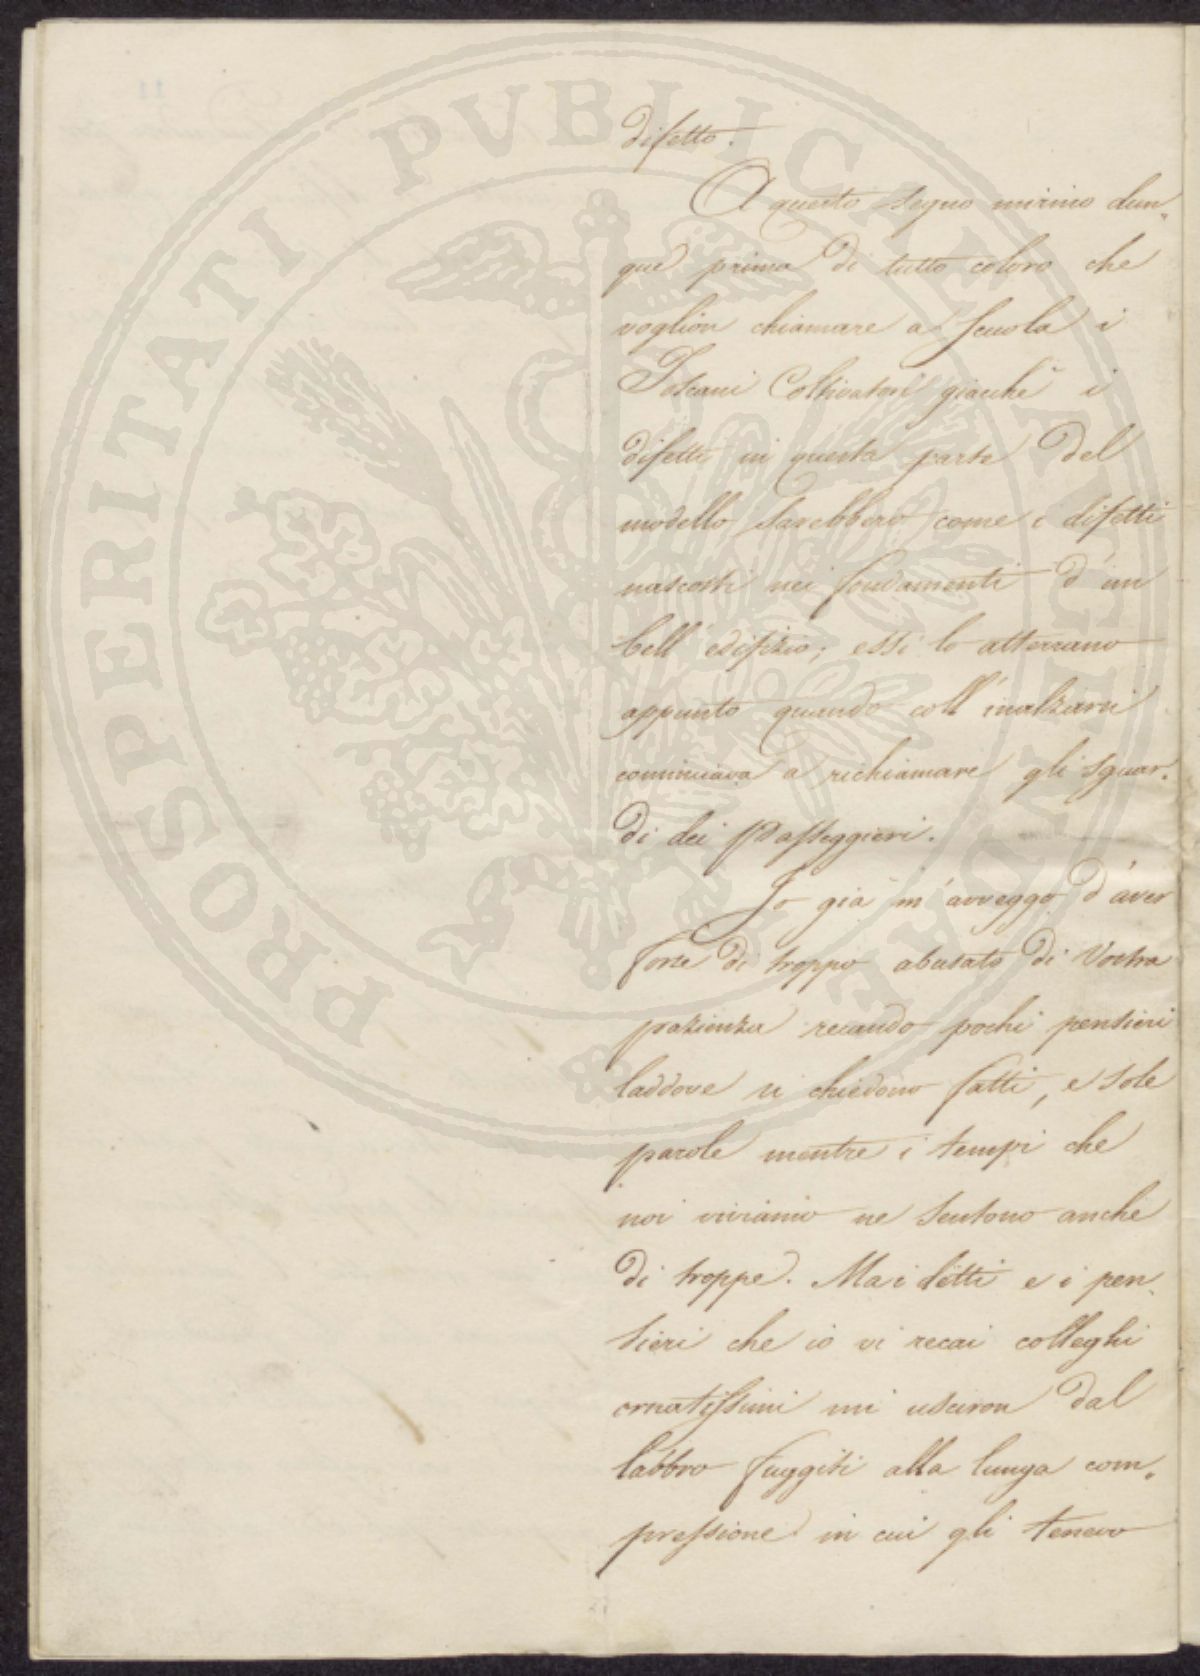 difetto.
A questo segno mirino dun„
que prima di tutto coloro che
voglion chiamare a Scuola i
Toscani Coltivatori giacchè i
difetti in questa parte del
modello sarebbero come i difetti
nascosti nei fondamenti d'un
bell'edifizio; essi lo atterrano
appunto quando coll'inalzarsi
cominciava a richiamare gli sguar„
di dei Passeggieri.
Io già m'avveggo d'aver
forse di troppo abusato di Vostra
pazienza recando pochi pensieri
laddove si chiedono fatti, e sole
parole mentre i tempi che
noi viviamo ne sentono anche
di troppe. Ma i detti e i pen„
sieri che io vi recai colleghi
ornatissimi mi usciron dal
labbro fuggiti alla lunga com„
pressione in cui gli tenevo
PROSPERITATI PVBLICAE AVGENDAE